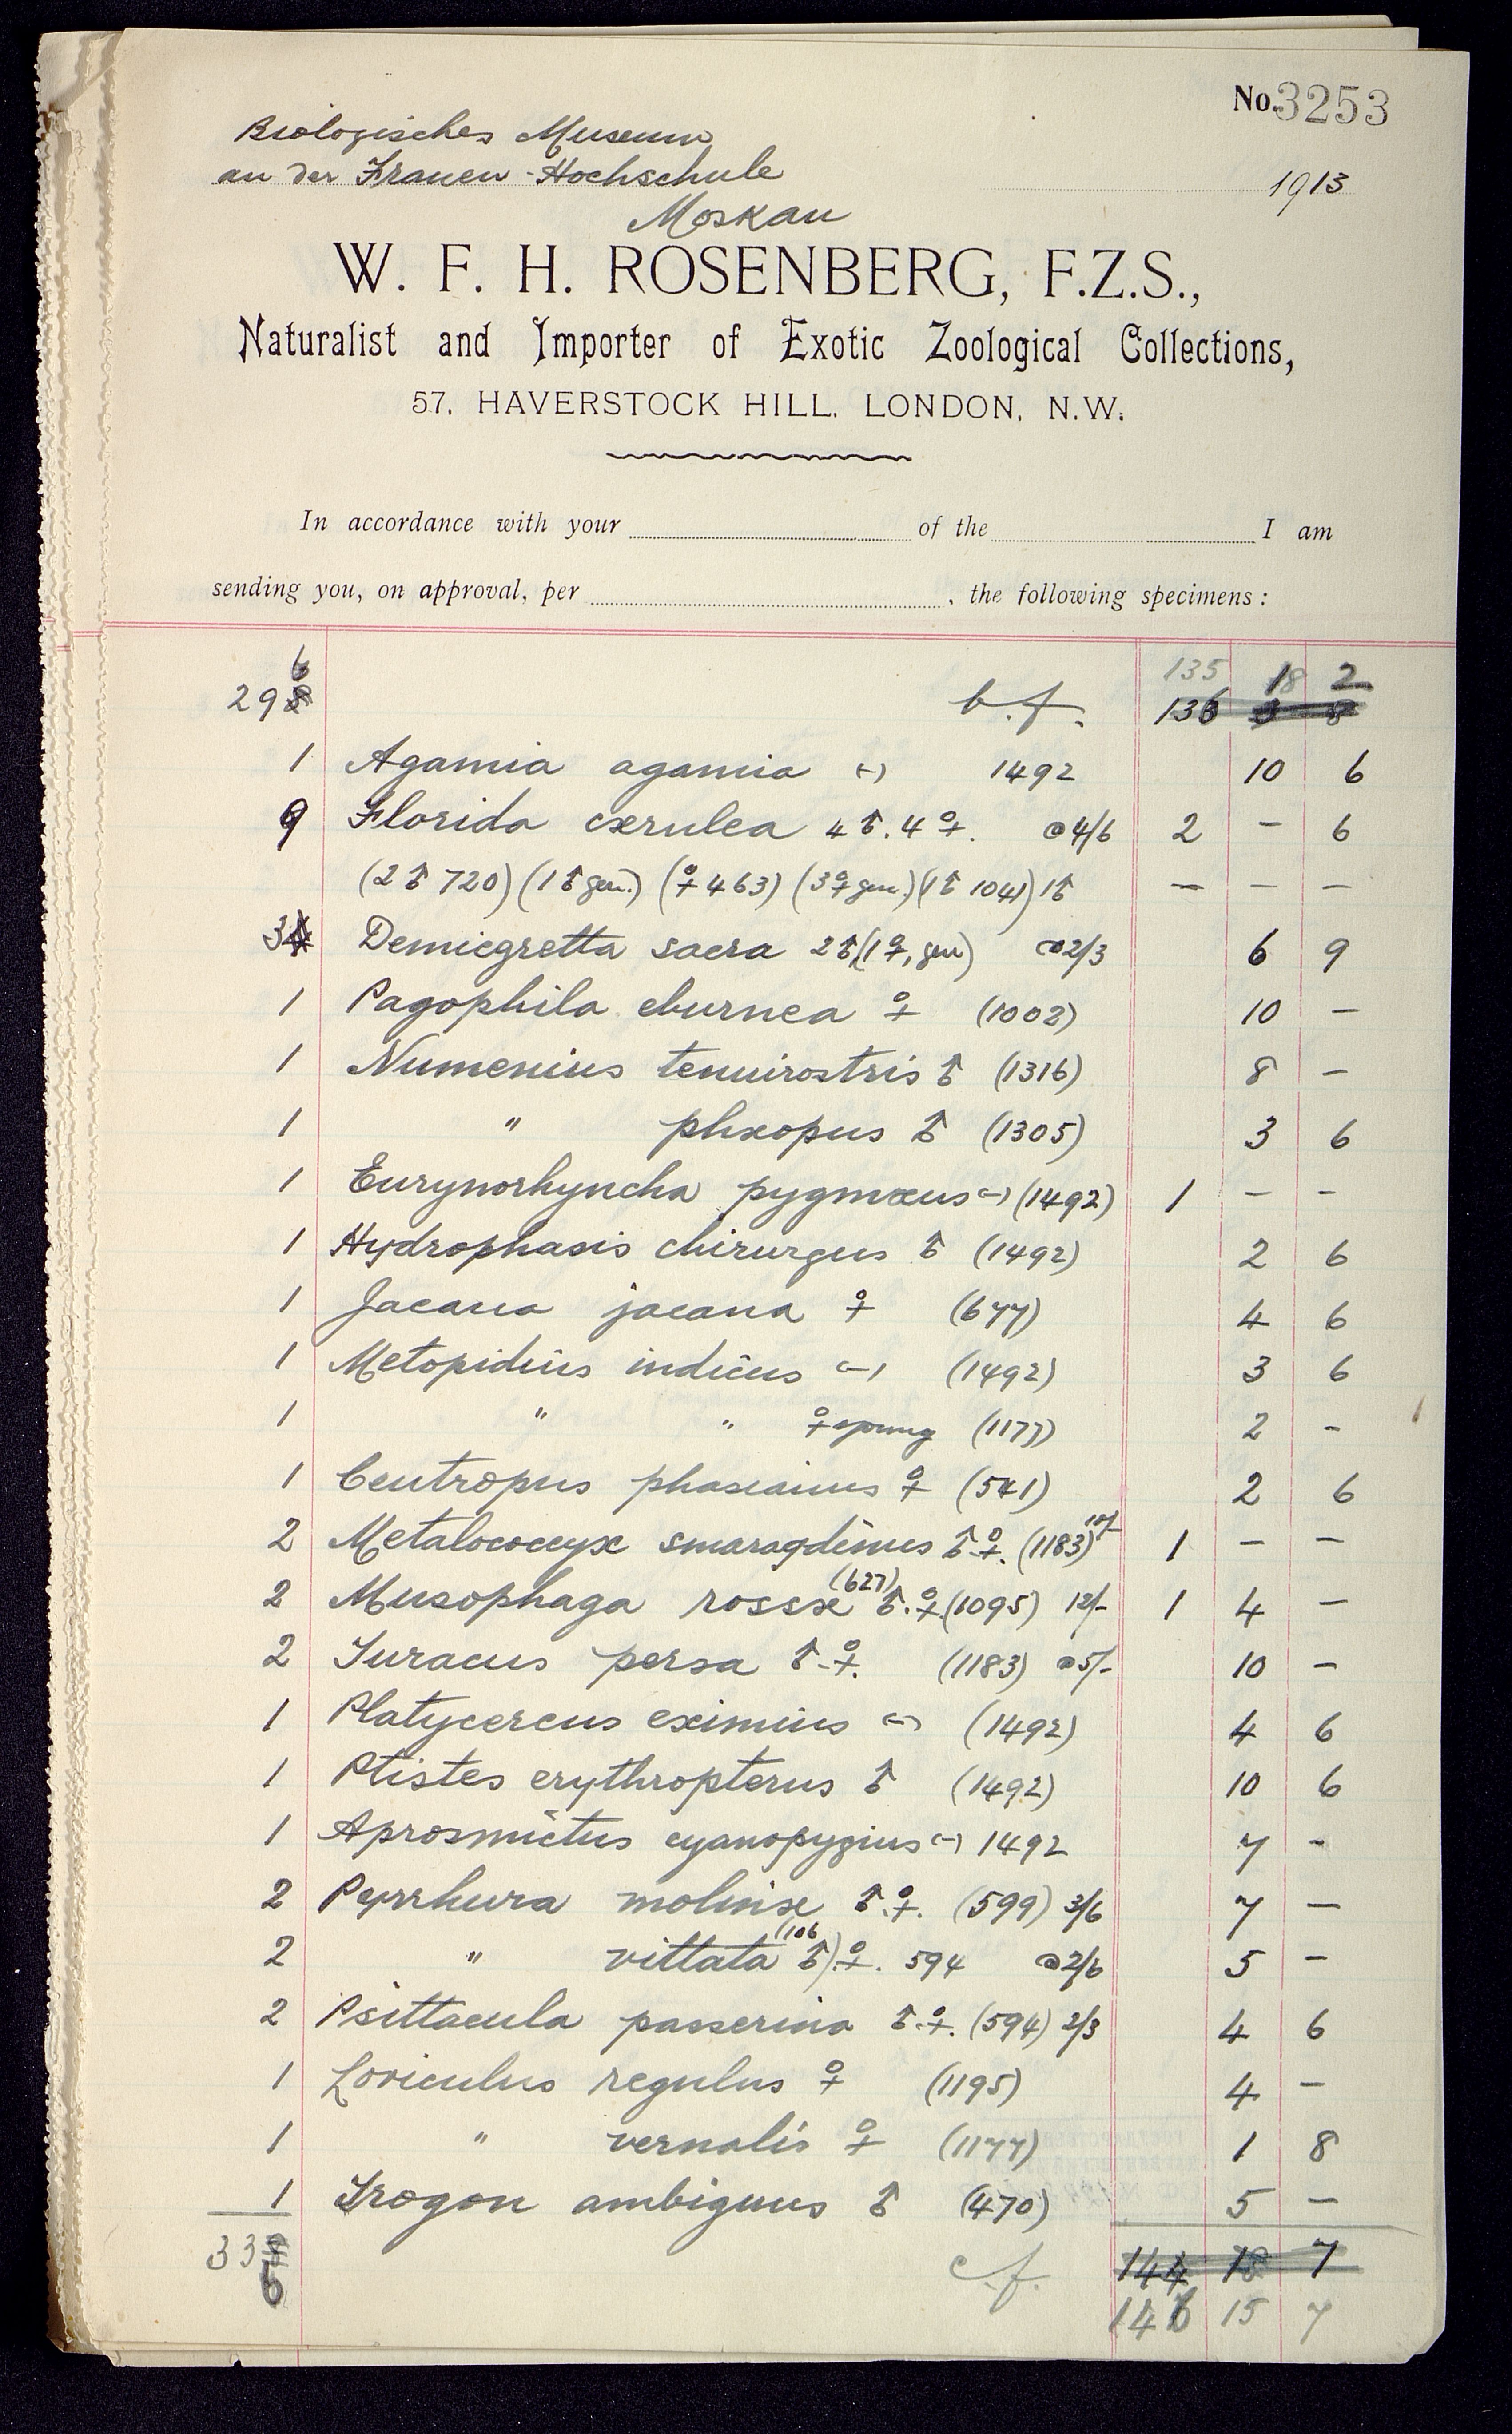 No. 3253
Biologisches Museum
an der Frauen-Hochschule 1913
Moskau
W. F. H. ROSENBERG, F.Z.S.,
Naturalist and Importer of Exotic Zoological Collections,
57, HAVERSTOCK HILL, LONDON, N.W.
In accordance with your of the I am
sending you, on approval, per , the following specimens:
6 135 18 2
298 b.f. 136
1 Agamia agamia (-) 1492 10 6
9 Florida cærulea 4♂. 4♀. @4/6 2 - 6
(2♂ 720) (1♂ gen.) (♀ 463) (3♀ gen.) (1♂ 104) 1♂ - - -
3 Demiegretta sacra 2♂ (1♀, gen) @2/3 6 9
1 Pagophila eburnea ♀ (1002) 10 -
1 Numenius tenuirostris ♂ (1316) 8 -
1 " phæopus ♂ (1305) 3 6
1 Eurynorhyncha pygmæus (-) (1492) 1 - -
1 Hydrophasis chirurgus ♂ (1492) 2 6
1 Jacana jacana ♀ (677) 4 6
1 Metopidius indicus (-) (1492) 3 6
1 " " ♀ young (1177) 2 -
1 Centropus phasianus ♀ (541) 2 6
2 Metalococcyx smaragdineus ♂.♀. (1183) 10/- 1 - -
2 Musophaga rossæ (627) ♂.♀. (1095) 12/- 1 4 -
2 Turacus persa ♂.♀. (1183) @5/- 10 -
1 Platycercus eximius (-) (1492) 4 6
1 Ptistes erythropterus ♂ (1492) 10 6
1 Aprosmictus cyanopygius (-) 1492 7 -
2 Pyrrhura molinæ ♂.♀. (599) 3/6 7 -
2 " vittata (106 ♂).♀. 594 @2/6 5 -
2 Psittacula passerina ♂.♀. (594) 2/3 4 6
1 Loriculus regulus ♀ (1195) 4 -
1 " vernalis ♀ (1177) 1 8
1 Trogon ambiguus ♂ (470) 5 -
33 c.f. 144 18 7
6 146 15 7